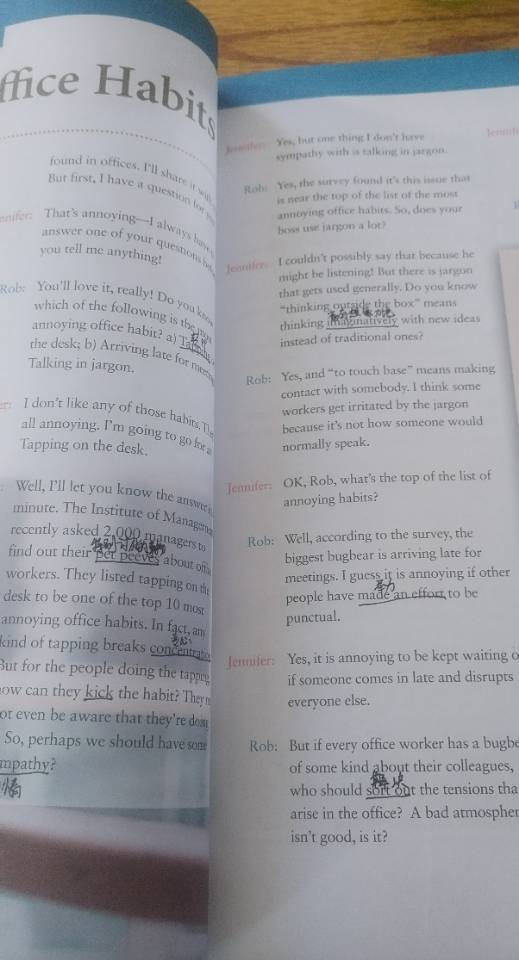 ffice Habits
found in offices. I'll share it
But first, I have a question for
That's annoying—I always
answer one of your questions
you tell me anything!
Rob: You'll love it, really! Do you
which of the following is the
annoying office habit? a)
the desk; b) Arriving late for
Talking in jargon.
I don't like any of those habits.
all annoying. I'm going to go for
Tapping on the desk.
Well, I'll let you know the answer
minute. The Institute of
recently asked 2,000 managers to
find out their pet peeves about
workers. They listed tapping on
desk to be one of the top 10 most
annoying office habits. In fact,
专心
kind of tapping breaks
But for the people doing the
how can they kick the habit? They
or even be aware that they're
So, perhaps we should have some
mpathy?
Jennifer: Yes, but one thing I don't have
sympathy with is talking in jargon.
Rob: Yes, the survey found it's this issue that
is near the top of the list of the most
annoying office habits. So, does your
boss use jargon a lot?
Jennifer: I couldn't possibly say that because he
might be listening! But there is jargon
that gets used generally. Do you know
"thinking outside the box" means
thinking imaginatively with new ideas
instead of traditional ones?
Rob: Yes, and "to touch base" means making
contact with somebody. I think some
workers get irritated by the jargon
because it's not how someone would
normally speak.
Jennifer: OK, Rob, what's the top of the list of
annoying habits?
Rob: Well, according to the survey, the
biggest bugbear is arriving late for
meetings. I guess it is annoying if other
people have made an effort to be
punctual.
Jennifer: Yes, it is annoying to be kept waiting o
if someone comes in late and disrupts
everyone else.
Rob: But if every office worker has a bugbe
of some kind about their colleagues,
who should sort out the tensions tha
arise in the office? A bad atmospher
isn't good, is it?